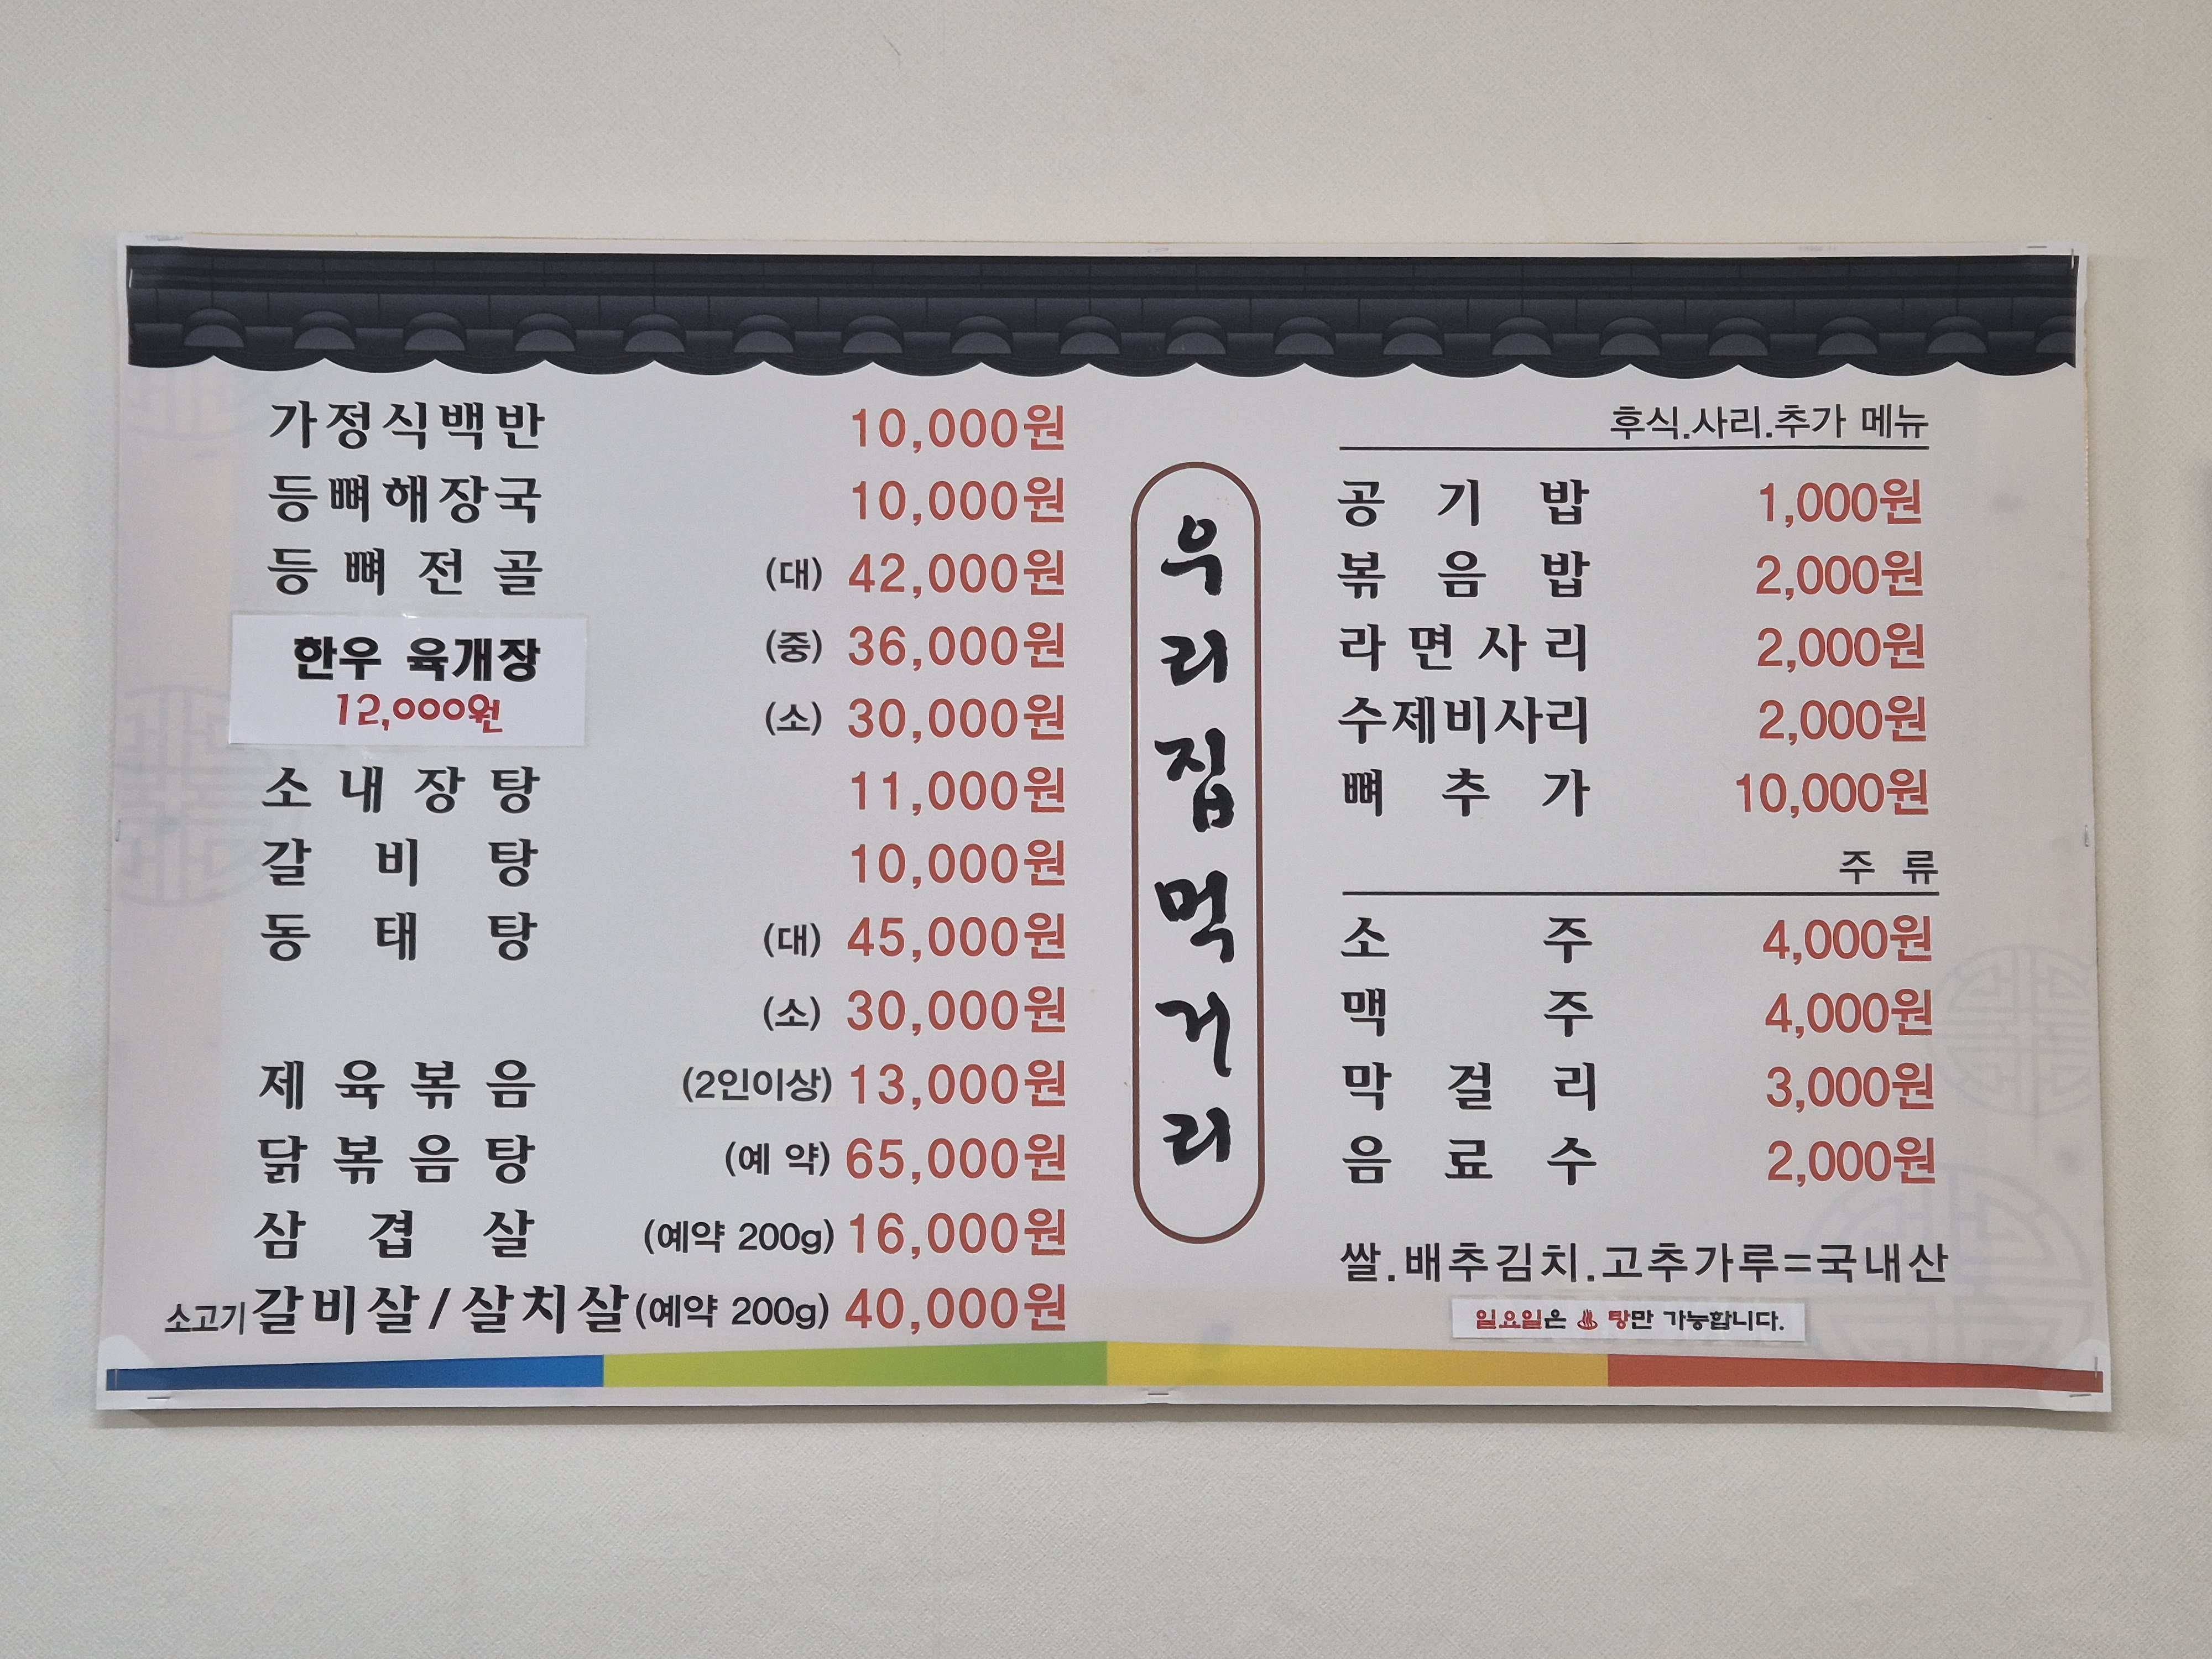 가정식백반 10,000원
등뼈해장국 10,000원
등뼈전골 (대) 42,000원
(중) 36,000원
(소) 30,000원
한우 육개장
12,000원
소내장탕 11,000원
갈비탕 10,000원
동태탕 (대) 45,000원
(소) 30,000원
제육볶음 (2인이상) 13,000원
닭볶음탕 (예 약) 65,000원
삼겹살 (예약 200g) 16,000원
소고기 갈비살/살치살 (예약 200g) 40,000원
우리집먹거리
후식.사리.추가 메뉴
공기밥 1,000원
볶음밥 2,000원
라면사리 2,000원
수제비사리 2,000원
뼈추가 10,000원
주 류
소주 4,000원
맥주 4,000원
막걸리 3,000원
음료수 2,000원
쌀.배추김치.고추가루=국내산
일요일은 ♨ 탕만 가능합니다.